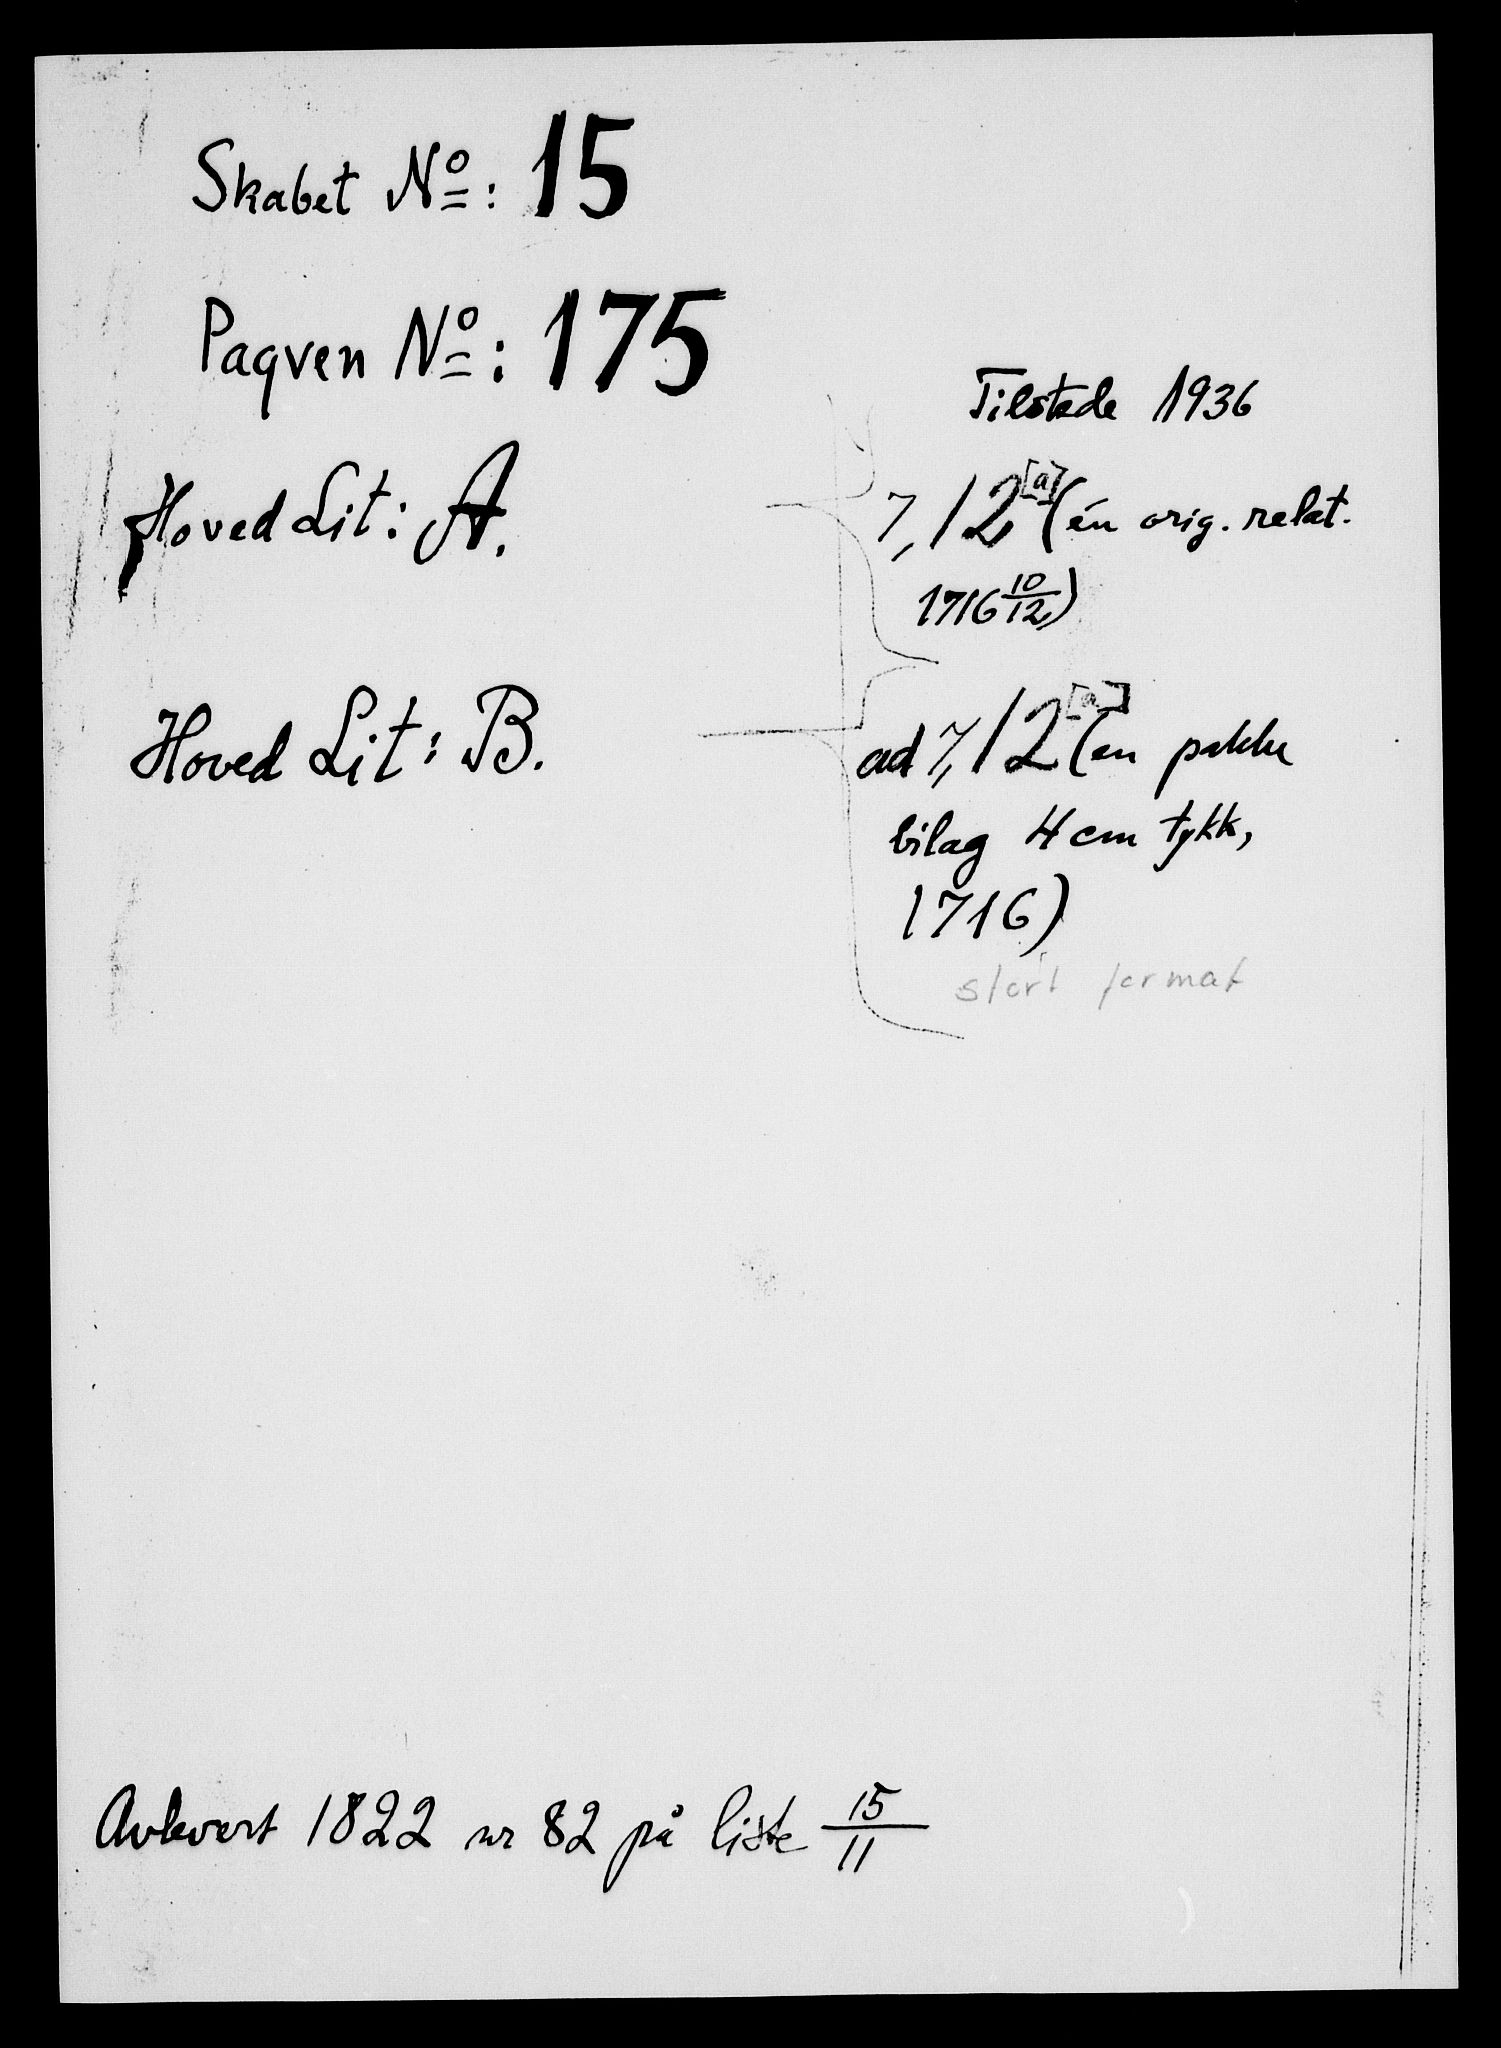 Skabet Nº: 15
Paqven Nº: 175
Tilstede 1936
Hoved Lit: A.
7, 12 [a] (én orig. relat.
1716 10/12)
Hoved Lit: B.
ad 7, 12 [a] (en pakke
bilag 4 cm tykk,
1716)
stort format
Avlevert 1822 nr 82 på liste 15/11